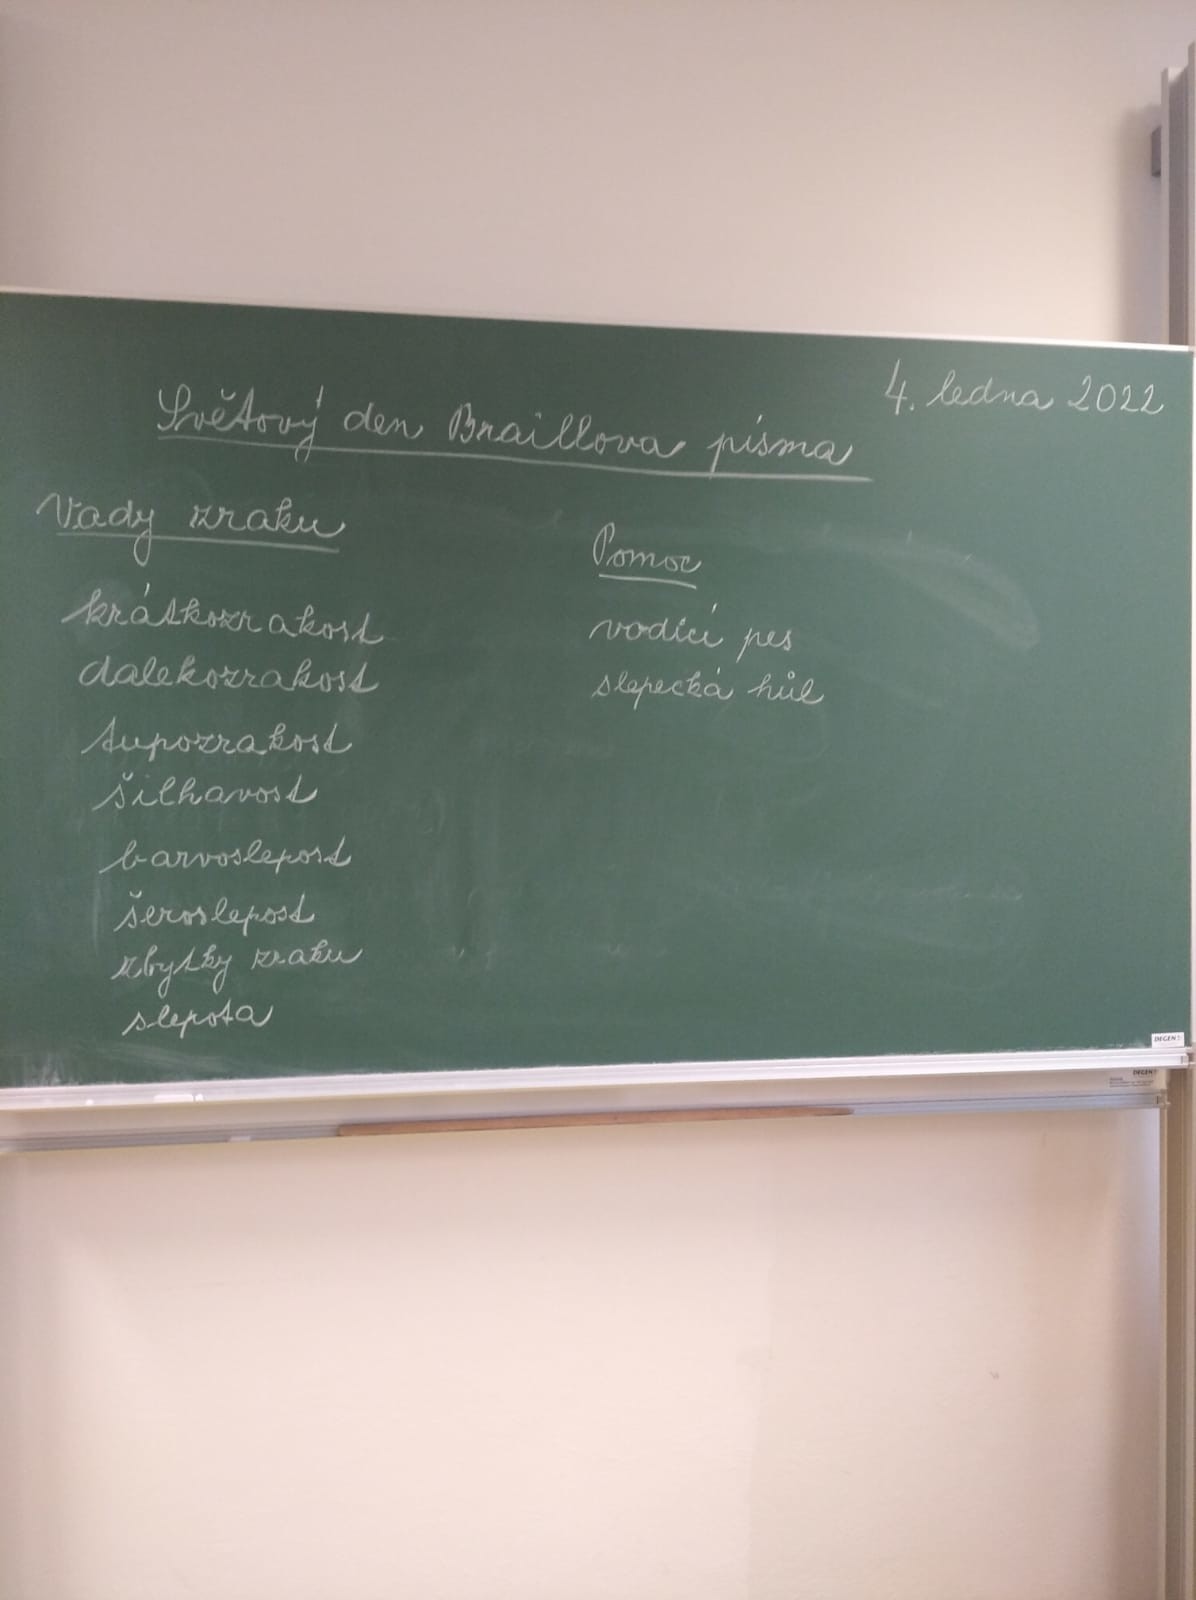 4. ledna 2022
Světový den Braillova písma
Vady zraku
krátkozrakost
dalekozrakost
tupozrakost
šilhavost
barvoslepost
šeroslepost
zbytky zraku
slepota
Pomoc
vodící pes
slepecká hůl
DEGEN
DEGEN